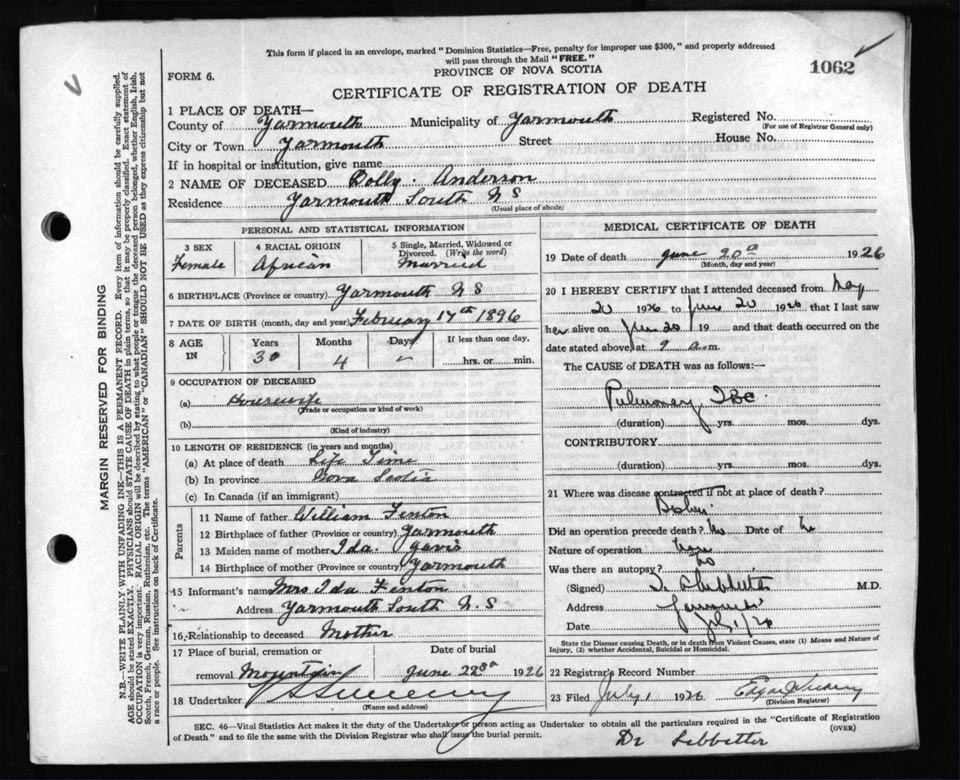 This form if placed in an envelope, marked "Dominion Statistics—Free, penalty for improper use $300," and properly addressed
will pass through the Mail "FREE."
1062
FORM 6.
PROVINCE OF NOVA SCOTIA
CERTIFICATE OF REGISTRATION OF DEATH
1 PLACE OF DEATH—
County of Yarmouth Municipality of Yarmouth Registered No.
(For use of Registrar General only)
City or Town Yarmouth Street House No.
If in hospital or institution, give name
2 NAME OF DECEASED Dolly Anderson
Residence Yarmouth South NS
(Usual place of abode)
PERSONAL AND STATISTICAL INFORMATION
3 SEX Female
4 RACIAL ORIGIN African
5 Single, Married, Widowed or
Divorced. (Write the word)
Married
6 BIRTHPLACE (Province or country) Yarmouth NS
7 DATE OF BIRTH (month, day and year) February 17th 1896
8 AGE IN Years 30 Months 4 Days – If less than one day, hrs. or min.
9 OCCUPATION OF DECEASED
(a) Housewife
(Trade or occupation or kind of work)
(b)
(Kind of industry)
10 LENGTH OF RESIDENCE (in years and months)
(a) At place of death Life Time
(b) In province Nova Scotia
(c) In Canada (if an immigrant)
Parents
11 Name of father William Fenton
12 Birthplace of father (Province or country) Yarmouth
13 Maiden name of mother Ida
14 Birthplace of mother (Province or country) Yarmouth
15 Informant's name Mrs Ida Fenton
Address Yarmouth South N.S
16 Relationship to deceased Mother
17 Place of burial, cremation or removal Mountain
Date of burial June 22nd 1926
18 Undertaker
(Name and address)
MEDICAL CERTIFICATE OF DEATH
19 Date of death June 20th 1926
(Month, day and year)
20 I HEREBY CERTIFY that I attended deceased from May
20 1926 to June 20 1926 that I last saw
her alive on June 20 19 and that death occurred on the
date stated above, at 9 a.m.
The CAUSE of DEATH was as follows:—
Pulmonary TBC
(duration) yrs. mos. dys.
CONTRIBUTORY
(duration) yrs. mos. dys.
21 Where was disease contracted if not at place of death?
Did an operation precede death? No Date of
Nature of operation
Was there an autopsy? No
(Signed) M.D.
Address Yarmouth
Date July 1/26
State the Disease causing Death, or in death from Violent Causes, state (1) Means and Nature of
Injury, (2) whether Accidental, Suicidal or Homicidal.
22 Registrar's Record Number
23 Filed July 1 1926
(Division Registrar)
SEC. 46—Vital Statistics Act makes it the duty of the Undertaker or person acting as Undertaker to obtain all the particulars required in the "Certificate of Registration
of Death" and to file the same with the Division Registrar who shall issue the burial permit.
(OVER)
Dr
MARGIN RESERVED FOR BINDING
N.B.—WRITE PLAINLY WITH UNFADING INK—THIS IS A PERMANENT RECORD. Every item of information should be carefully supplied.
AGE should be stated EXACTLY. PHYSICIANS should STATE CAUSE OF DEATH in plain terms, so that it may be properly classified. Exact statement of
OCCUPATION is very important. RACIAL ORIGIN will be described by stating to what people or tongue the deceased person belonged, whether English, Irish,
Scotch, French, German, Russian, Ruthenian, etc. The terms "AMERICAN" or "CANADIAN" SHOULD NOT BE USED as they express citizenship but not
a race or people. See instructions on back of Certificate.